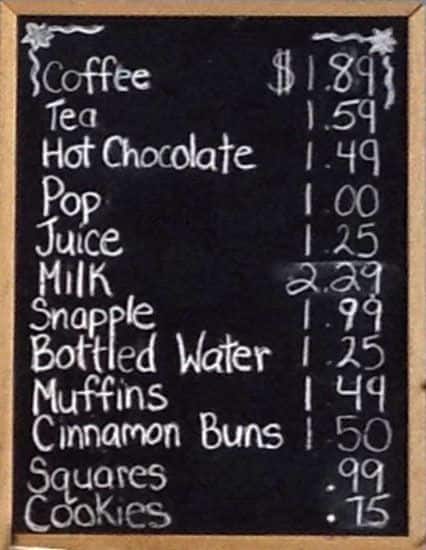 Coffee $1.89
Tea 1.59
Hot Chocolate 1.49
Pop 1.00
Juice 1.25
Milk 2.29
Snapple 1.99
Bottled Water 1.25
Muffins 1.49
Cinnamon Buns 1.50
Squares .99
Cookies .75